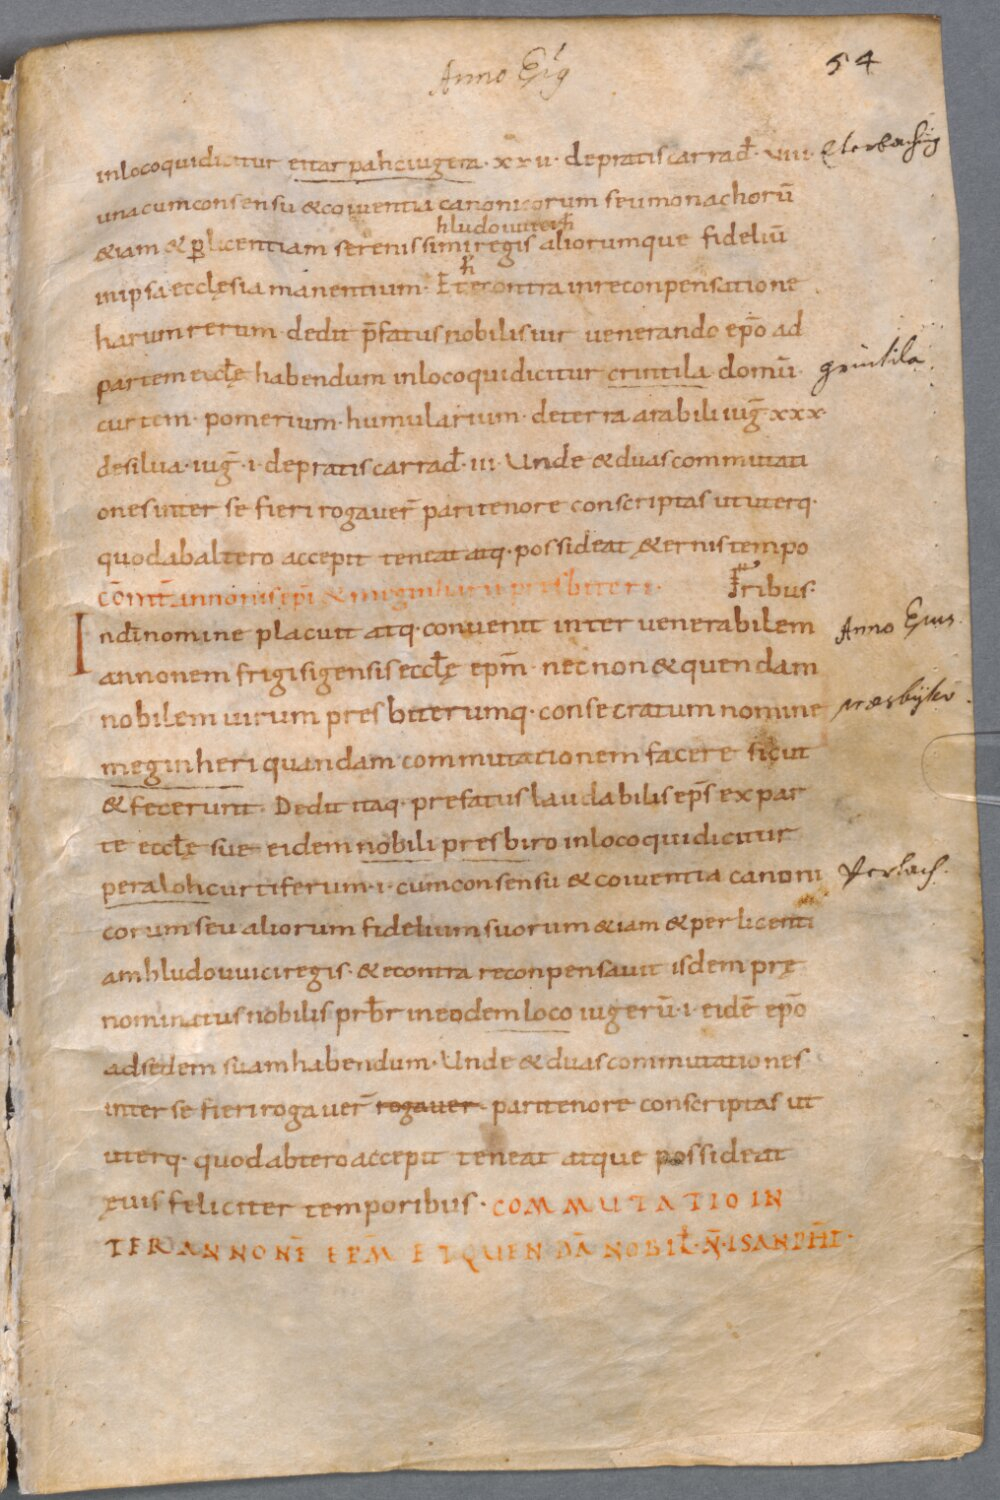 Anno Ep̄s
54
inlocoquidicitur eitar pahc iugera · xxv · depratis carrad̄ · viii · Eterbach
unacumconsensu &coniventia canonicorum seu monachorū
hludouuici h̄
&iam & ꝑlicentiam serenissimi regis aliorumque fideliū
h̄
inipsa ecclęsia manentium · Et econtra inreconpensatione
harum rerum dedit p̄fatus nobilis uir venerando ep̄o ad
partem eccłę habendum inlocoquidicitur crintila domū · grintila
curtem · pomerium · humularium · deterra arabili iuḡ xxx ·
desilua · iuḡ · i · depratis carrad̄ · iii · Unde &duas commutati
ones inter se fieri rogauer̄ paritenore conscriptas ut uterq·
quodabaltero accepit teneat atq· possideat &ernis tempo
com̄t̄ annonis ep̄i & meginharii presbiteri · h̄ ribus ·
Indīnomine placuit atq· convenit inter venerabilem Anno Epus
annonem frigisigensis eccłę ep̄m · necnon & quendam
nobilem uirum presbiterumq· consecratum nomine presbyter
meginheri quandam commutationem facere sicut
&fecerunt · Dedit itaq· prefatus laudabilis ep̄s ex par
te eccłę sue eidem nobili presbiro inlocoquidicitur
peralohcurtiferum · i · cumconsensu & coniventia canoni Perlach
corum seu aliorum fidelium suorum &iam & per licenti
am hludouuici regis · & econtra reconpensauit isdem prę
nominatus nobilis prb̄r ineodem loco iugerū · i · eidē ep̄o
adsedem suamhabendum · Unde & duas commutationes
inter se fieri rogauer̄ rogauer paritenore conscriptas ut
uterq· quodabtero accepit teneat atque possideat
ęuis feliciter temporibus · COMMUTATIO IN
TER ANNONĒ EPM̄ ET QUENDĀ NOBIL̄ · N̄ · ISANPHT̄ ·